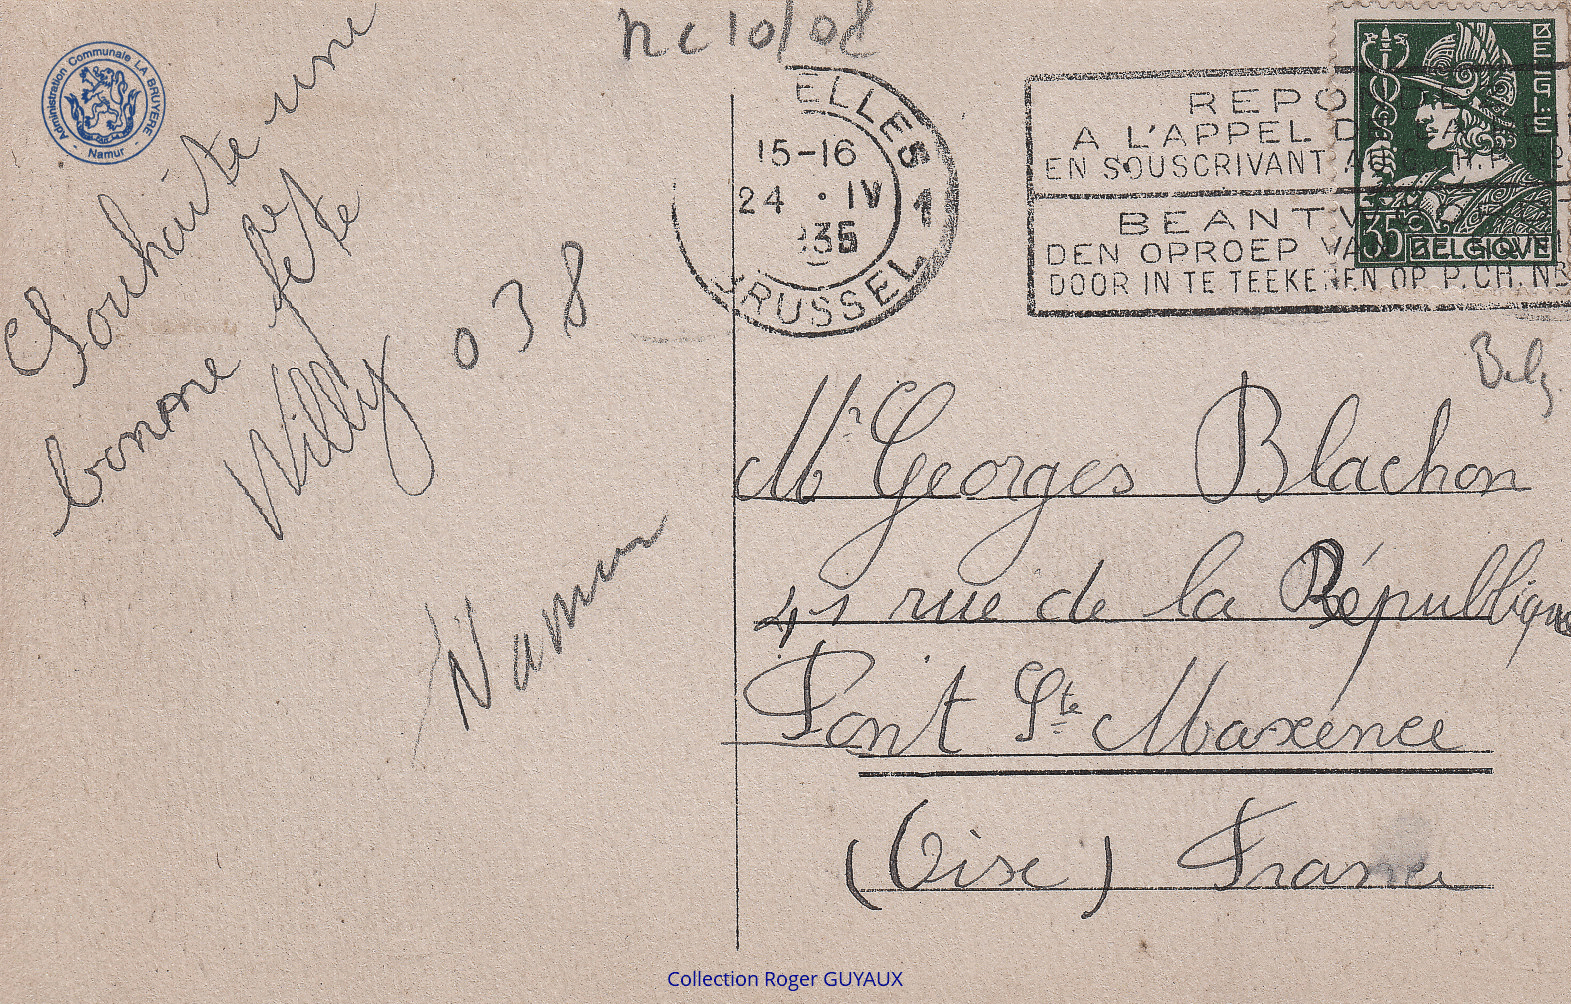 nc10/08
Administration Communale LA BRUYERE
- Namur -
Souhaite une
bonne fête
Willy
038
Namur
ELLES
15-16
24 · IV
1
BRUSSEL
A L'APPEL
EN SOUSCRIVANT
DEN OPROEP VAN
DOOR IN TE TEEKENEN OP P.CH. NR
BELGIË
35 BELGIQUE
Belg
Mr Georges Blachon
41 rue de la Républlique
Pont Ste Maxence
(Oise) France
Collection Roger GUYAUX